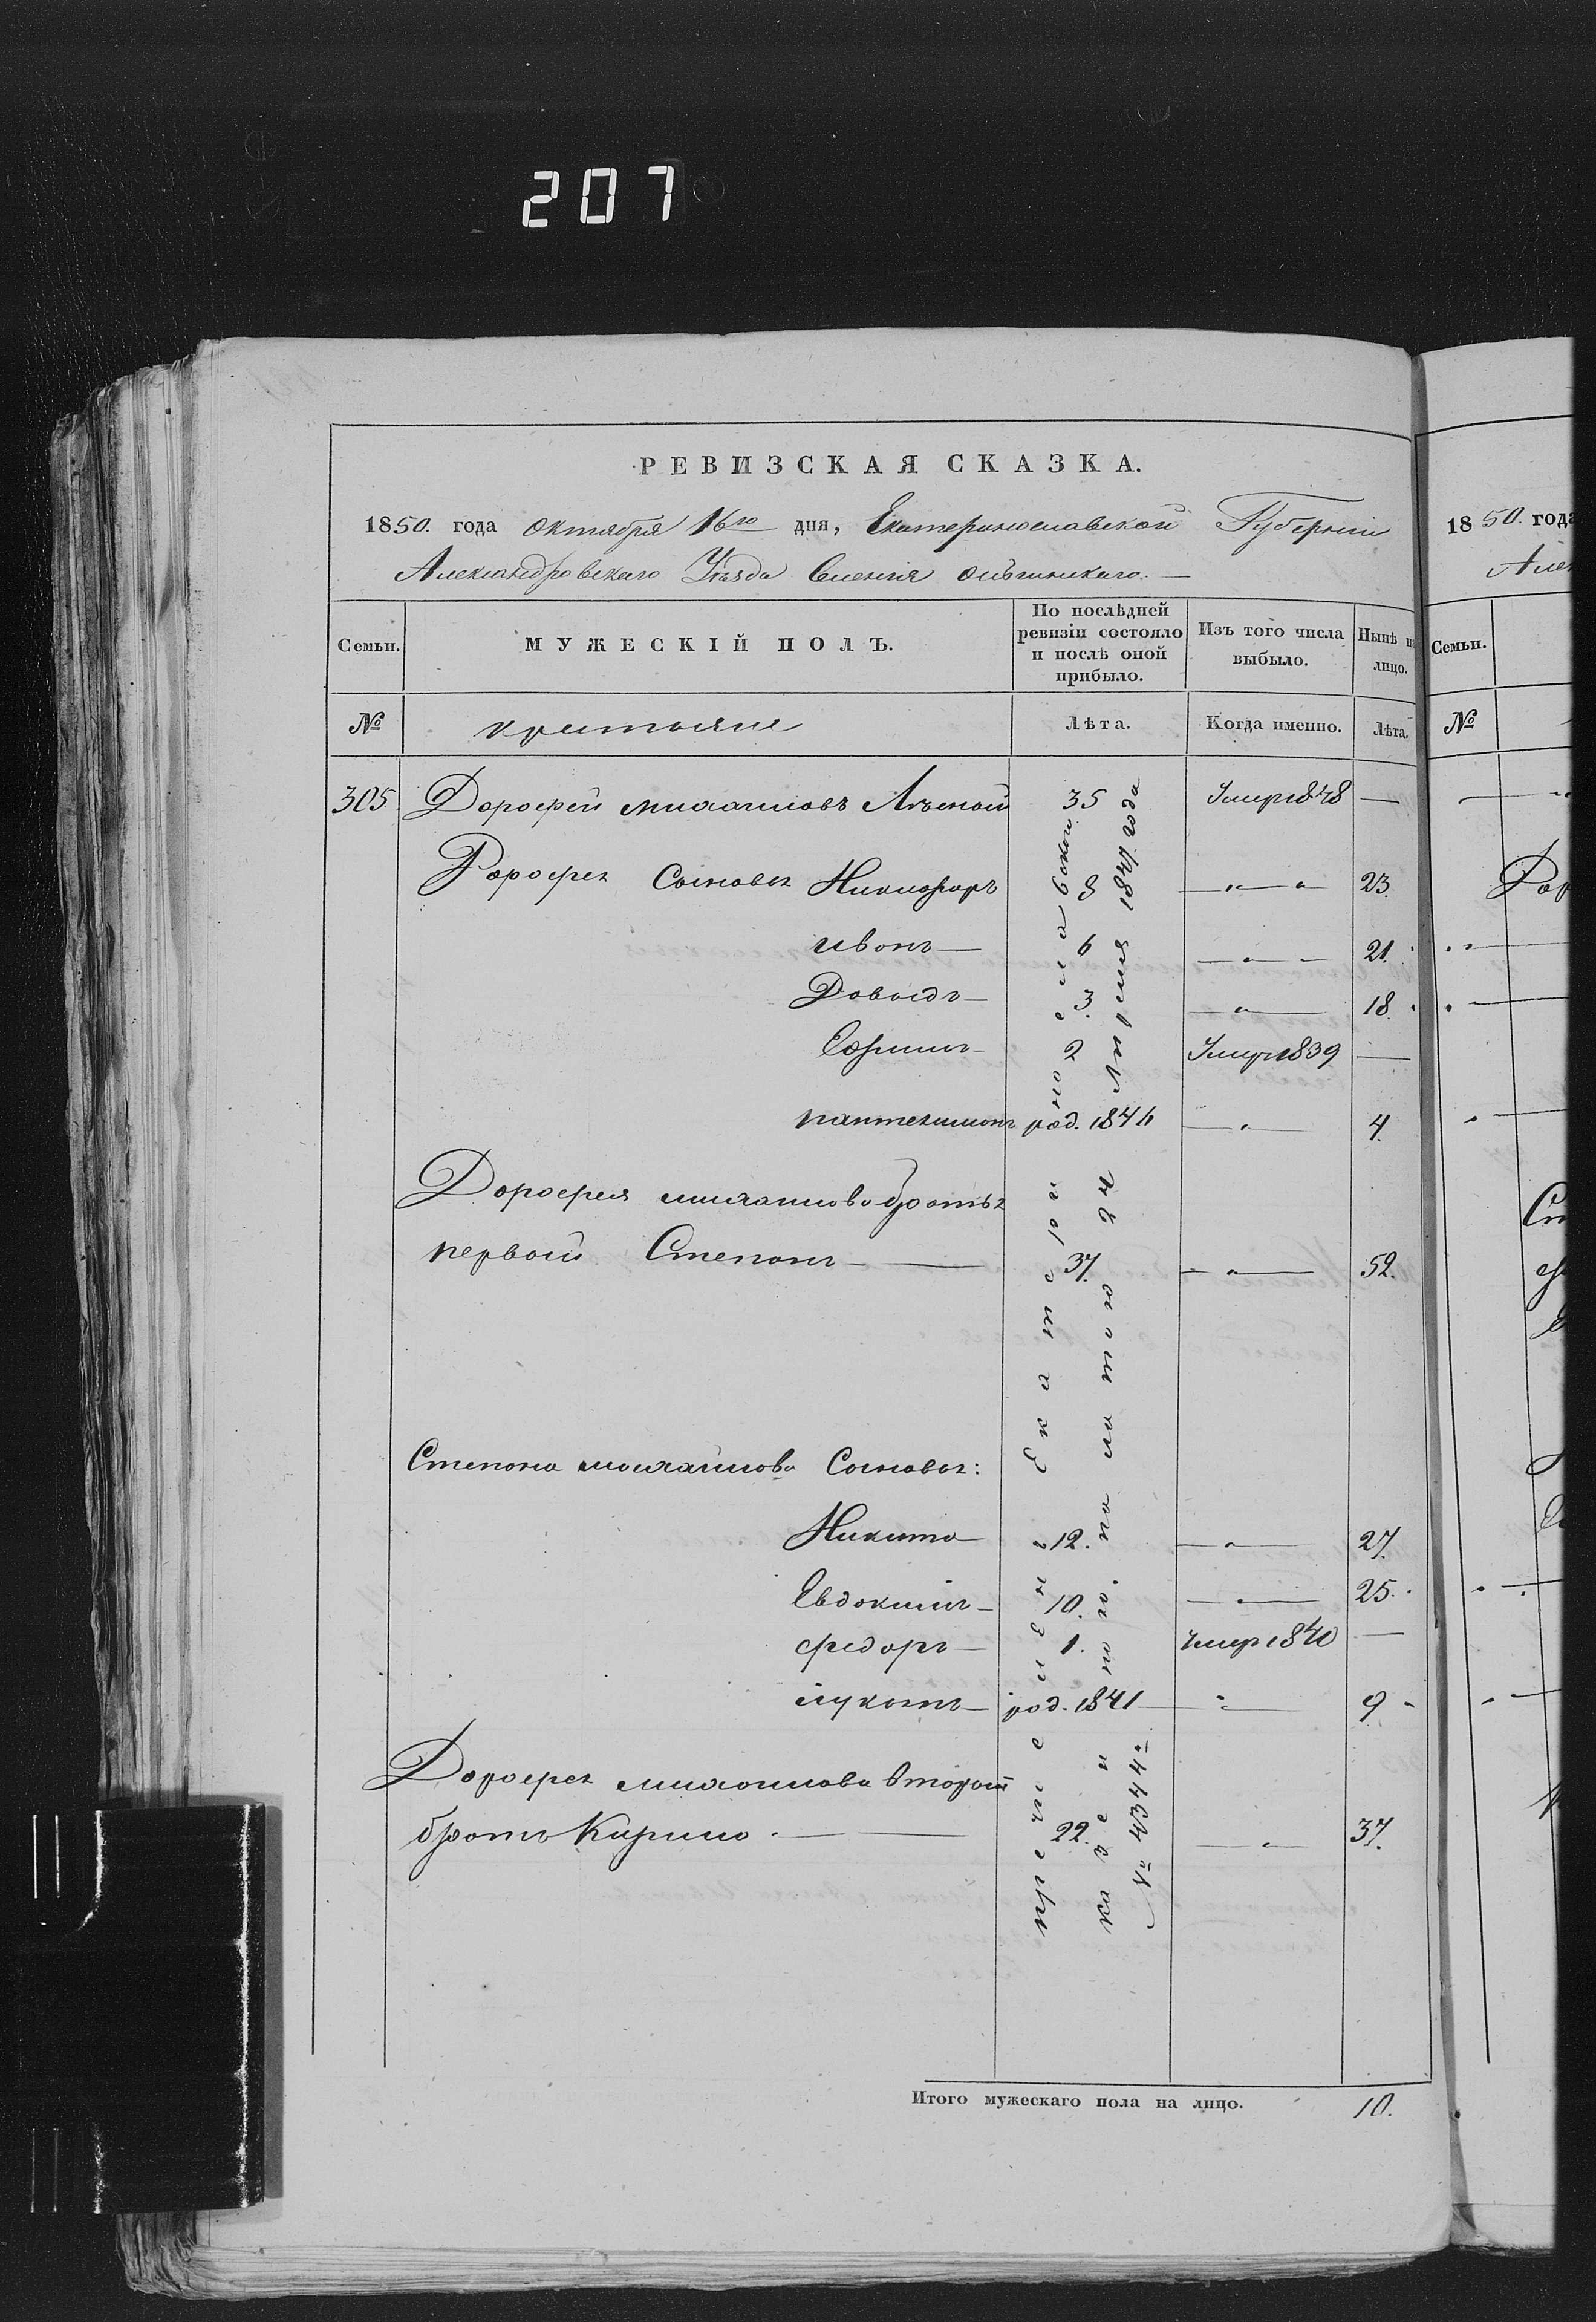 207
РЕВИЗСКАЯ СКАЗКА.
1850. года Октября 16го дня, Екатеринославской Губернiи
Александровскаго Уѣзда Селенiя
Семьи. МУЖЕСКIЙ ПОЛЪ. По послѣдней ревизiи состояло и послѣ оной прибыло. Изъ того числа выбыло. Нынѣ на лицо.
№ крестьяне Лѣта. Когда именно. Лѣта.
305 Дорофей михаиловъ 35 Умер 1848 —
Дорофея Сыновья Никифоръ 8 — " — " 23.
ивонъ — 6 — " — 21.
Довыдъ — 3. — " — 18.
Ефимъ — 2 Умер 1839 —
пантелимонъ род. 1846 — " — 4.
Дорофея михаилова братья
первой Степонъ — 37. — " — 52.
Степона михайлова Сыновья:
Никита — 12. — " — 27.
Евдокимъ — 10. — " — 25.
федоръ — 1. Умер 1840 —
лукомъ — род. 1841 — " — 9
Дорофея михаилова второй
братъ Кирило. — 22. — " — 37.
причислены Екатеринославской
казенною палатою 24 Апреля 1841 года
№ 4344:
Итого мужескаго пола на лицо. 10.
1850. года
Семьи.
№